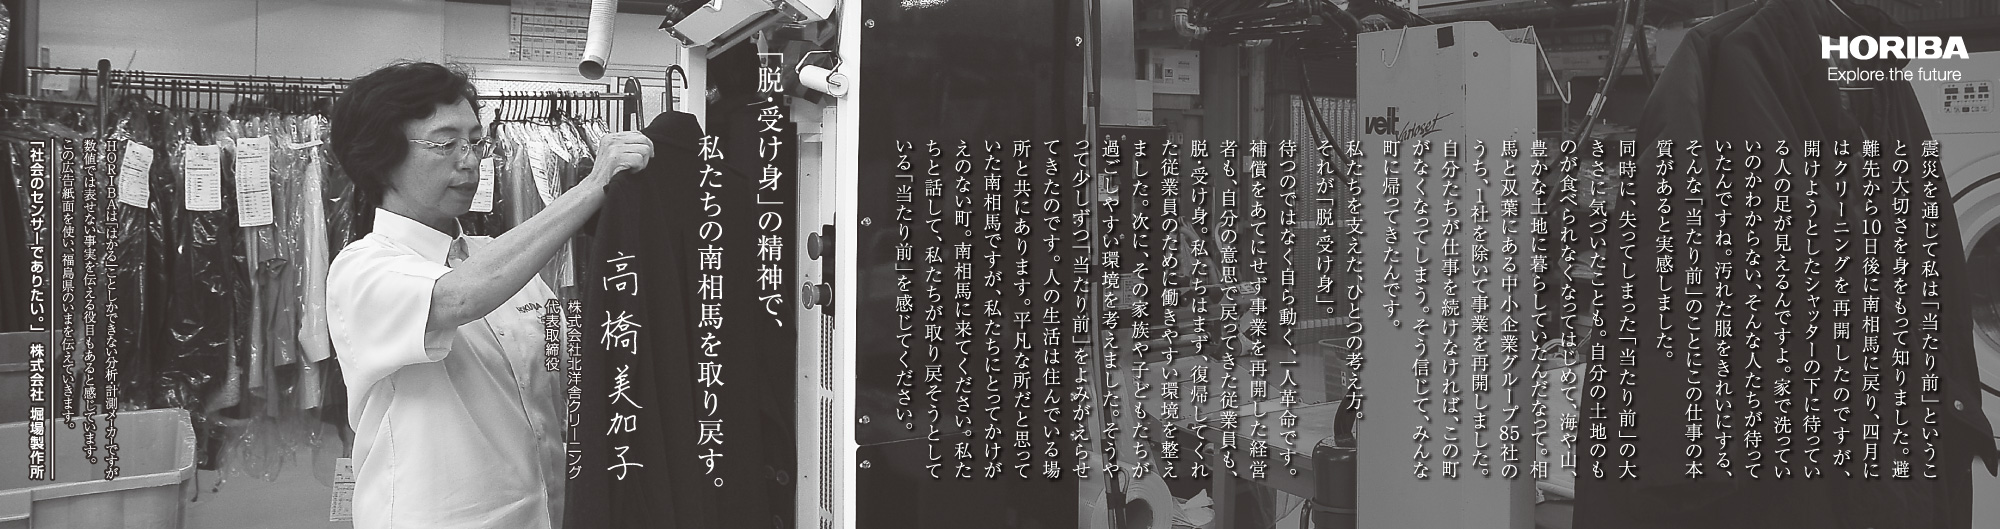 HORIBA
Explore the future
震災を通じて私は「当たり前」というこ
との大切さを身をもって知りました。避
難先から10日後に南相馬に戻り、四月に
はクリーニングを再開したのですが、
開けようとしたシャッターの下に待ってい
る人の足が見えるんですよ。家で洗ってい
いのかわからない、そんな人たちが待って
いたんですね。汚れた服をきれいにする、
そんな「当たり前」のことにこの仕事の本
質があると実感しました。
同時に、失ってしまった「当たり前」の大
きさに気づいたことも。自分の土地のも
のが食べられなくなってはじめて、海や山、
豊かな土地に暮らしていたんだなって。相
馬と双葉にある中小企業グループ85社の
うち、1社を除いて事業を再開しました。
自分たちが仕事を続けなければ、この町
がなくなってしまう。そう信じて、みんな
町に帰ってきたんです。
私たちを支えた、ひとつの考え方。
それが「脱・受け身」。
待つのではなく自ら動く、一人革命です。
補償をあてにせず事業を再開した経営
者も、自分の意思で戻ってきた従業員も、
脱・受け身。私たちはまず、復帰してくれ
た従業員のために働きやすい環境を整え
ました。次に、その家族や子どもたちが
過ごしやすい環境を考えました。そうや
って少しずつ「当たり前」をよみがえらせ
てきたのです。人の生活は住んでいる場
所と共にあります。平凡な所だと思って
いた南相馬ですが、私たちにとってかけが
えのない町。南相馬に来てください。私た
ちと話して、私たちが取り戻そうとして
いる「当たり前」を感じてください。
「脱・受け身」の精神で、
私たちの南相馬を取り戻す。
株式会社北洋舎クリーニング
代表取締役
高橋美加子
HORIBAは「はかる」ことしかできない分析・計測メーカーですが
数値では表せない事実を伝える役目もあると感じています。
この広告紙面を使い、福島県のいまを伝えていきます。
「社会のセンサーでありたい。」 株式会社 堀場製作所
veit
Varioset